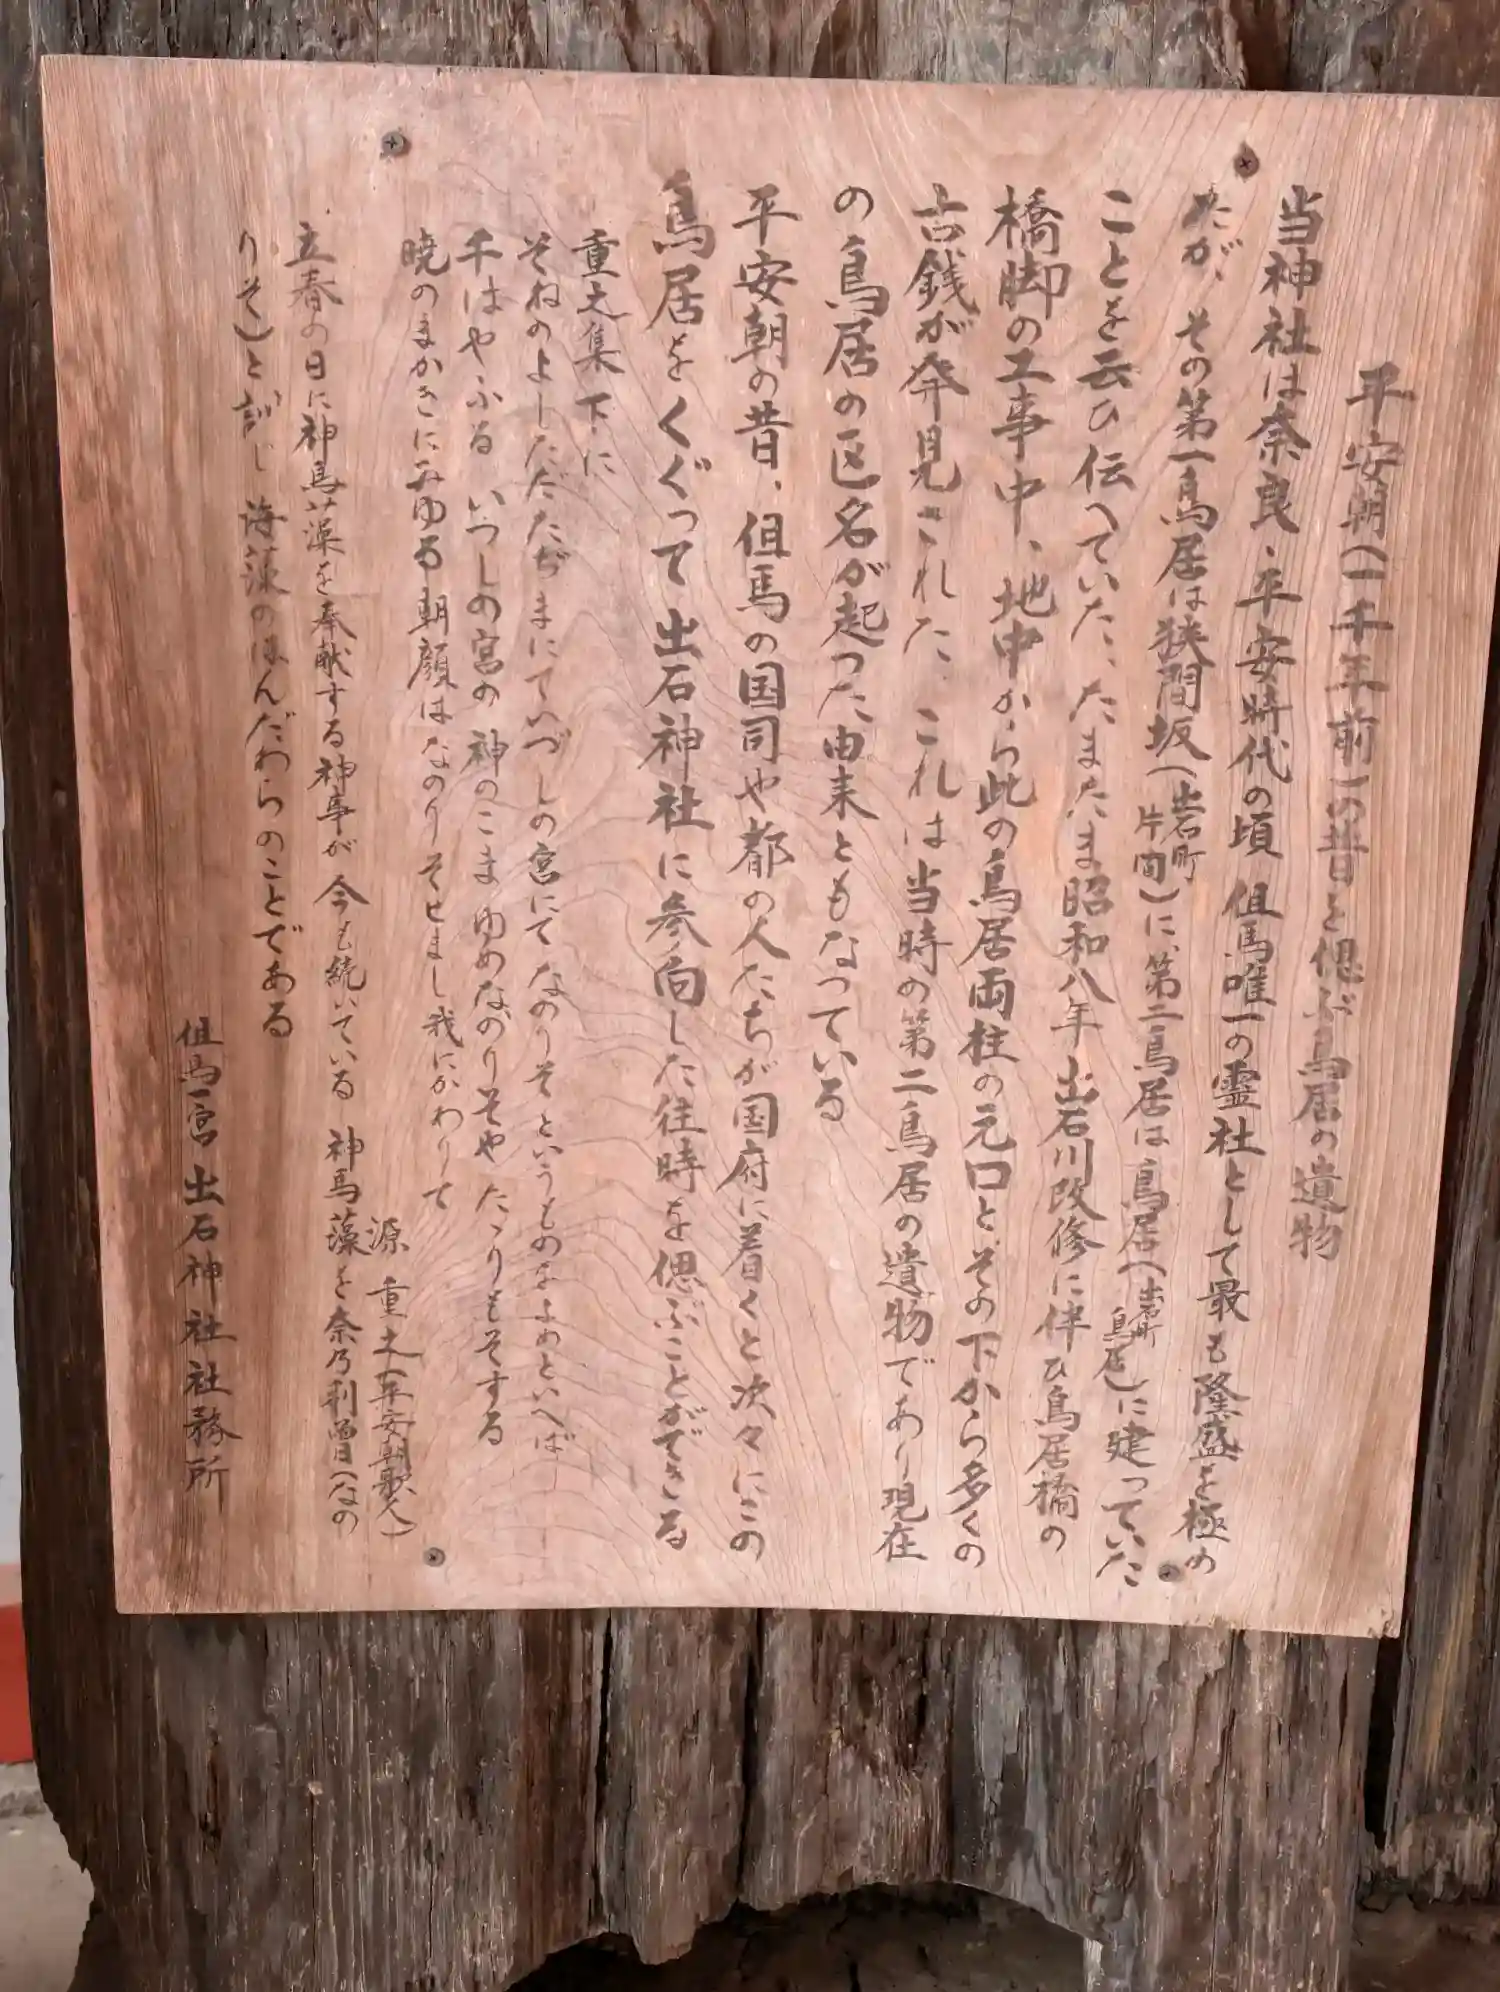 平安朝(一千年前)の昔を偲ぶ鳥居の遺物
当神社は奈良・平安時代の頃 但馬唯一の霊社として最も隆盛を極め
たが、その第一鳥居は狭間坂(出石町片間)に、第二鳥居は鳥居(出石町鳥居)に建っていた
ことを云ひ伝へていた、たまたま昭和八年出石川改修に伴ひ鳥居橋の
橋脚の工事中、地中から此の鳥居両柱の元口と、その下から多くの
古銭が発見された、これは当時の第二鳥居の遺物であり現在
の鳥居の区名が起つた由来ともなっている
平安朝の昔、但馬の国司や都の人たちが国府に着くと次々にこの
鳥居をくぐって出石神社に参向した往時を偲ぶことができる
重之集 下に
そねのよしただたぢまにていづしの宮にて なのりそというものをよめといへば
千はやふる いつしの宮の 神のこま ゆめなのりそや たゝりもそする
暁のまかきにみゆる朝顔はなのりそせまし我にかわりて
源 重之(平安朝歌人)
立春の日に神馬藻を奉献する神事が 今も続いている 神馬藻を奈乃利曽(なの
りそ)と訓じ 海藻のほんだわらのことである
但馬一宮 出石神社社務所